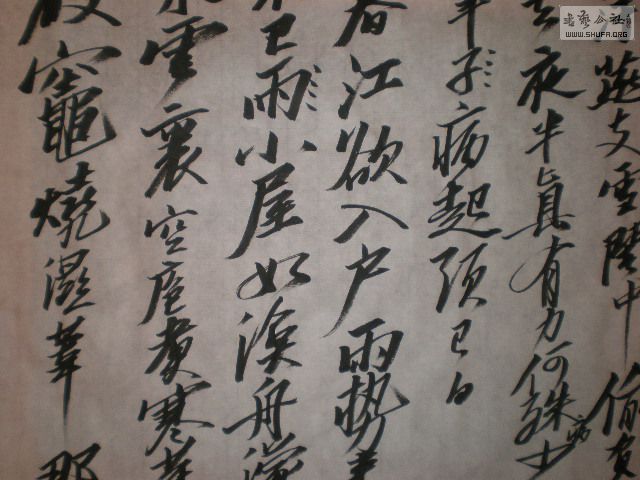 燕支雪闇中偷負
去夜半眞有力何殊少病
年子病起須已白
春江欲入戶雨勢來
不已雨小屋如漁舟濛
水雲裏空庖煮寒菜
破竈燒濕葦那
書藝公社
WWW.SHUFA.ORG